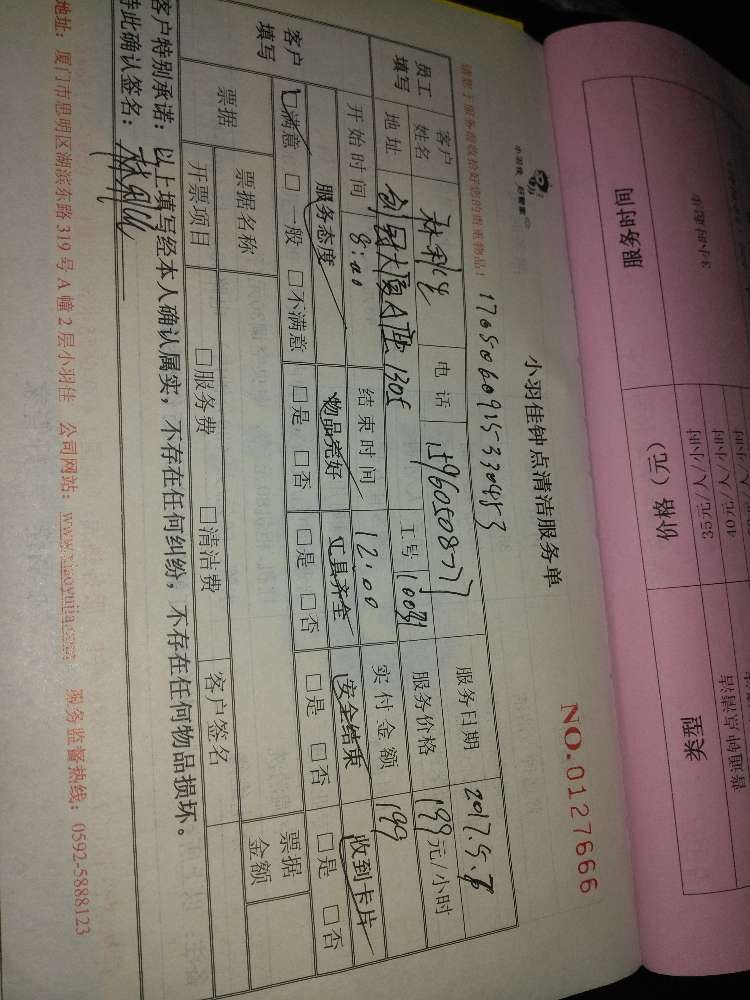 小羽佳钟点清洁服务单
NO.0127666
小羽佳 好管家
17050609153330453
请您于服务前收拾好您的贵重物品！
员工填写 客户姓名 电话 服务日期 2017.5.
地址 创国大厦A座1305 工号 服务价格 199元/小时
开始时间 8:00 结束时间 12:00 实付金额 199
客户填写 服务态度 物品完好 工具齐全 安全结束 收到卡片
☑满意 □一般 □不满意 □是 □否 □是 □否 □是 □否 □是 □否
票据 票据名称 客户签名 票据金额
开票项目 □服务费 □清洁费
客户特别承诺：以上填写经本人确认属实，不存在任何纠纷，不存在任何物品损坏。
特此确认签名：
地址：厦门市思明区湖滨东路319号A幢2层小羽佳 公司网站：www.xiaoyujia.com 服务监督热线：0592-5888123
服务时间 价格（元） 类型
3小时起步 35元/人/小时 普通钟点清洁
40元/人/小时